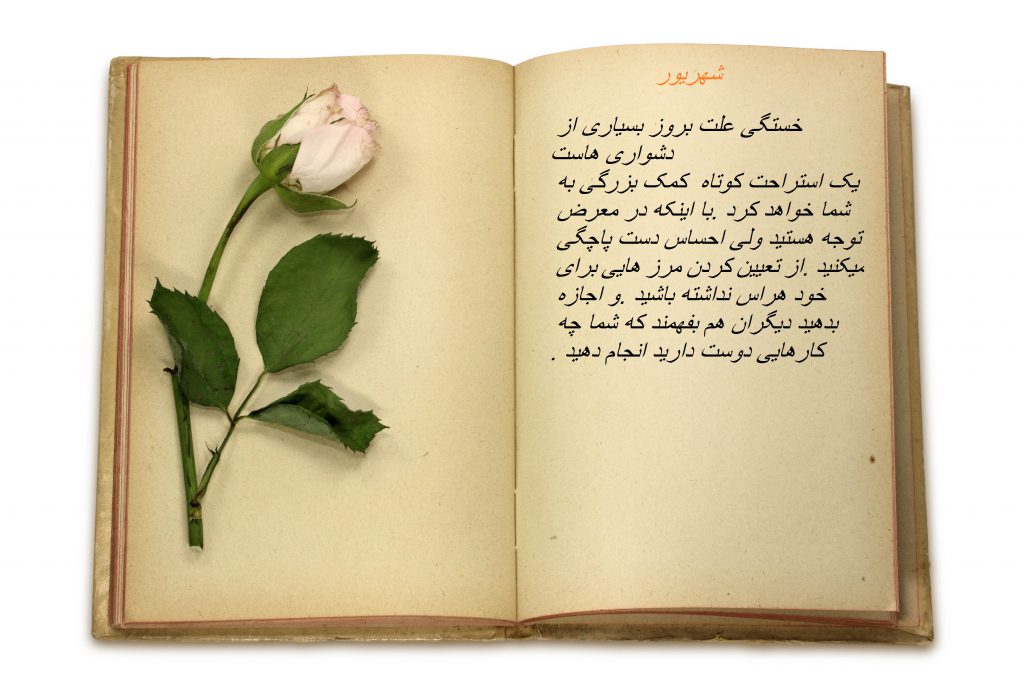 شهریور
خستگی علت بروز بسیاری از
دشواری هاست
یک استراحت کوتاه کمک بزرگی به
شما خواهد کرد .با اینکه در معرض
توجه هستید ولی احساس دست پاچگی
میکنید .از تعیین کردن مرز هایی برای
خود هراس نداشته باشید .و اجازه
بدهید دیگران هم بفهمند که شما چه
کارهایی دوست دارید انجام دهید .